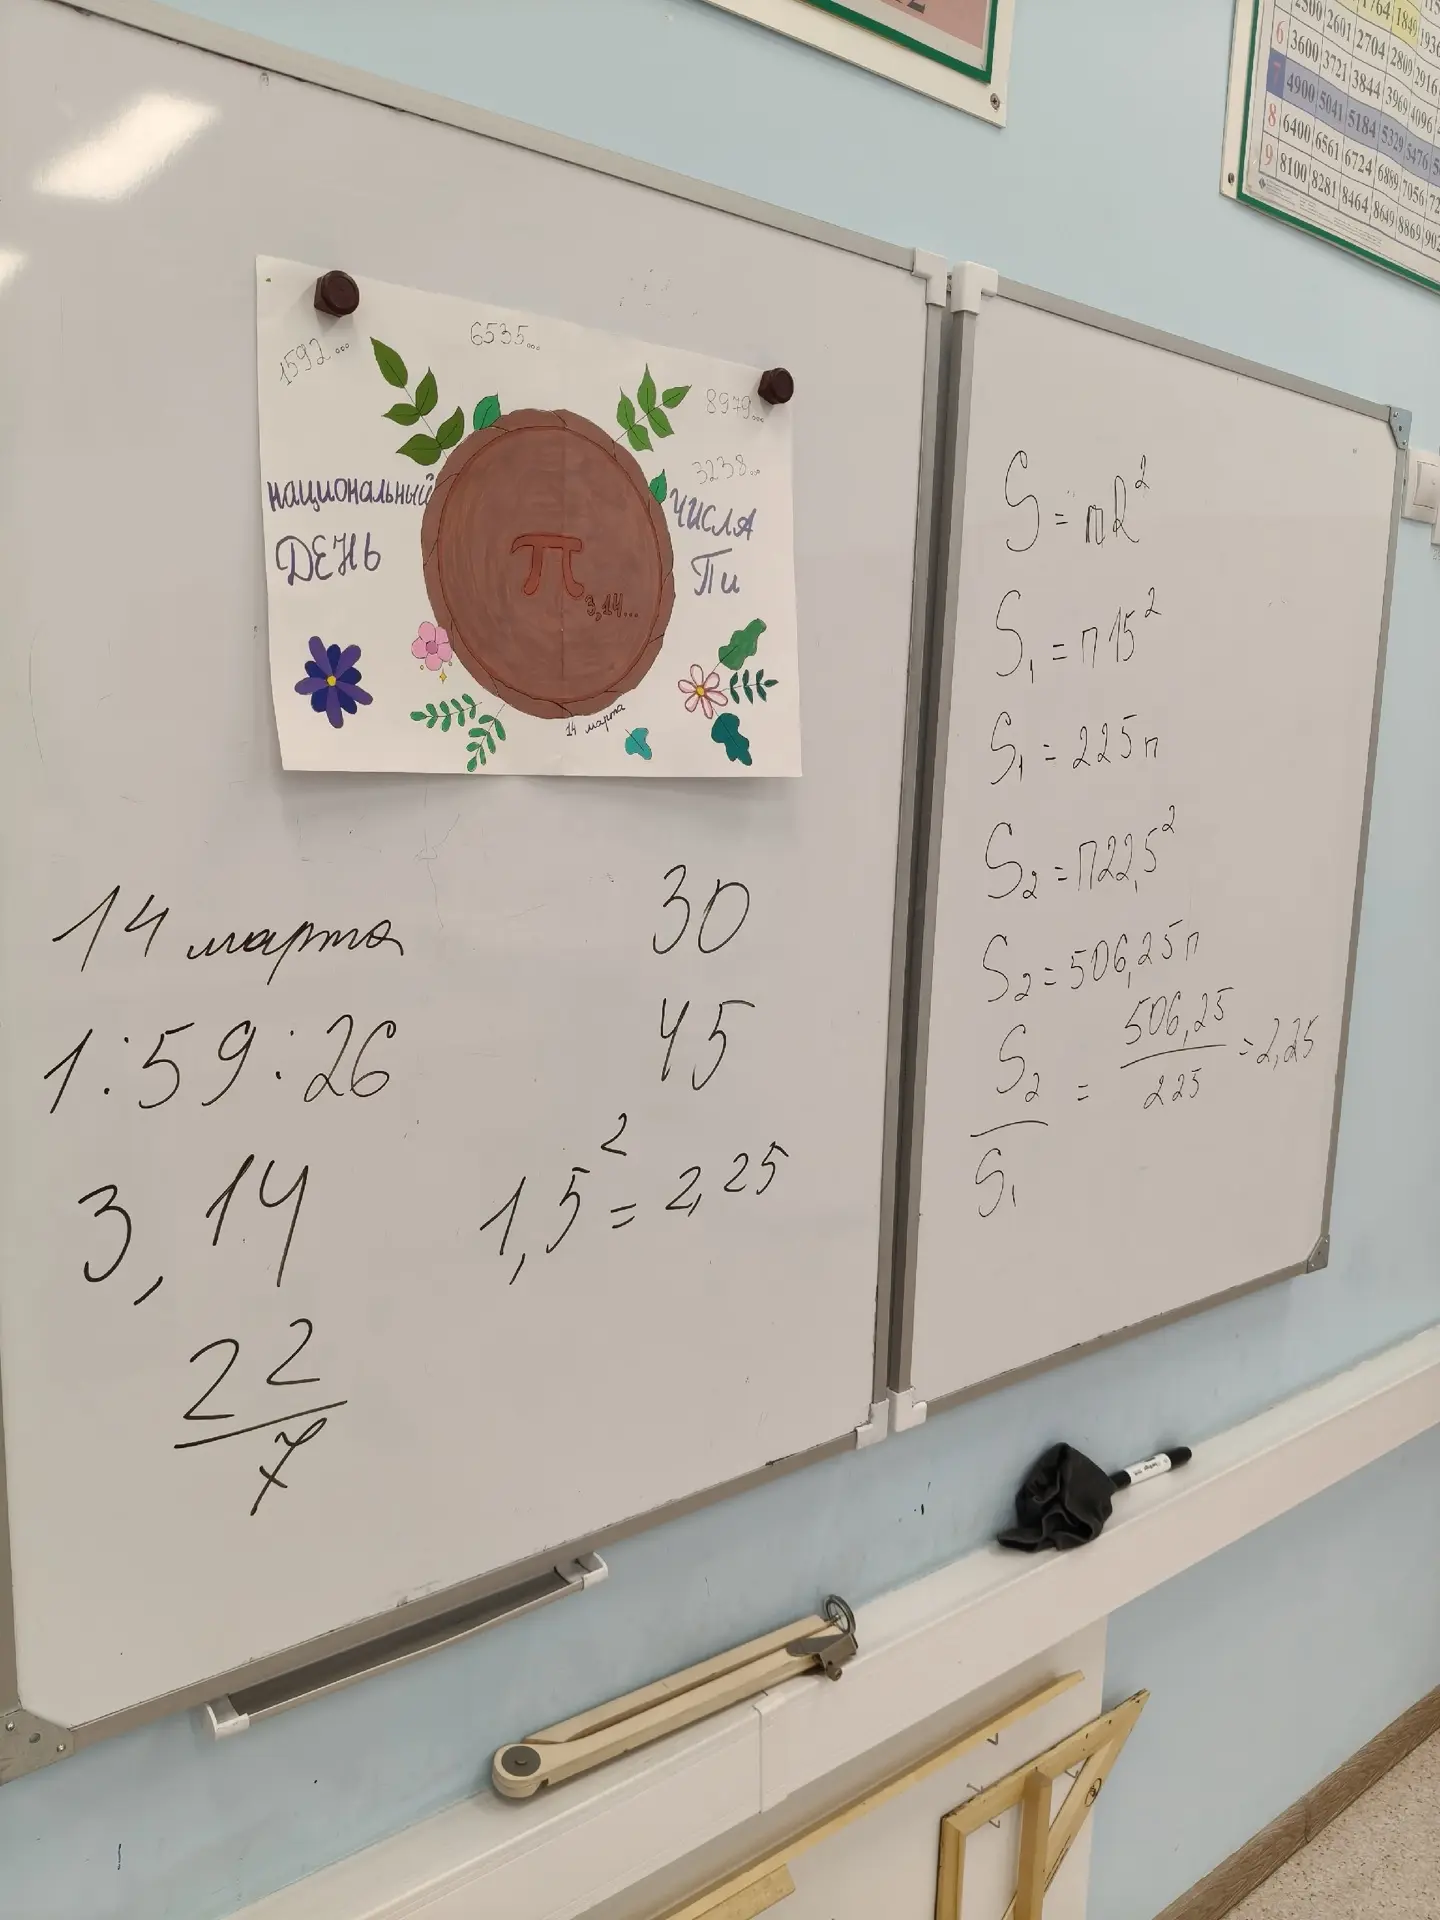 1592...
6535...
8979...
3238...
национальный
ДЕНЬ
ЧИСЛА
Пи
π
3,14...
14 марта
14 марта
1:59:26
3,14
22
7
30
45
1,5² = 2,25
S = πR²
S₁ = π15²
S₁ = 225π
S₂ = π22,5²
S₂ = 506,25π
S₂/S₁ = 506,25/225 = 2,25
6 3600 3721 3844 3969 4096
7 4900 5041 5184 5329 5476
8 6400 6561 6724 6889 7056
9 8100 8281 8464 8649 8869